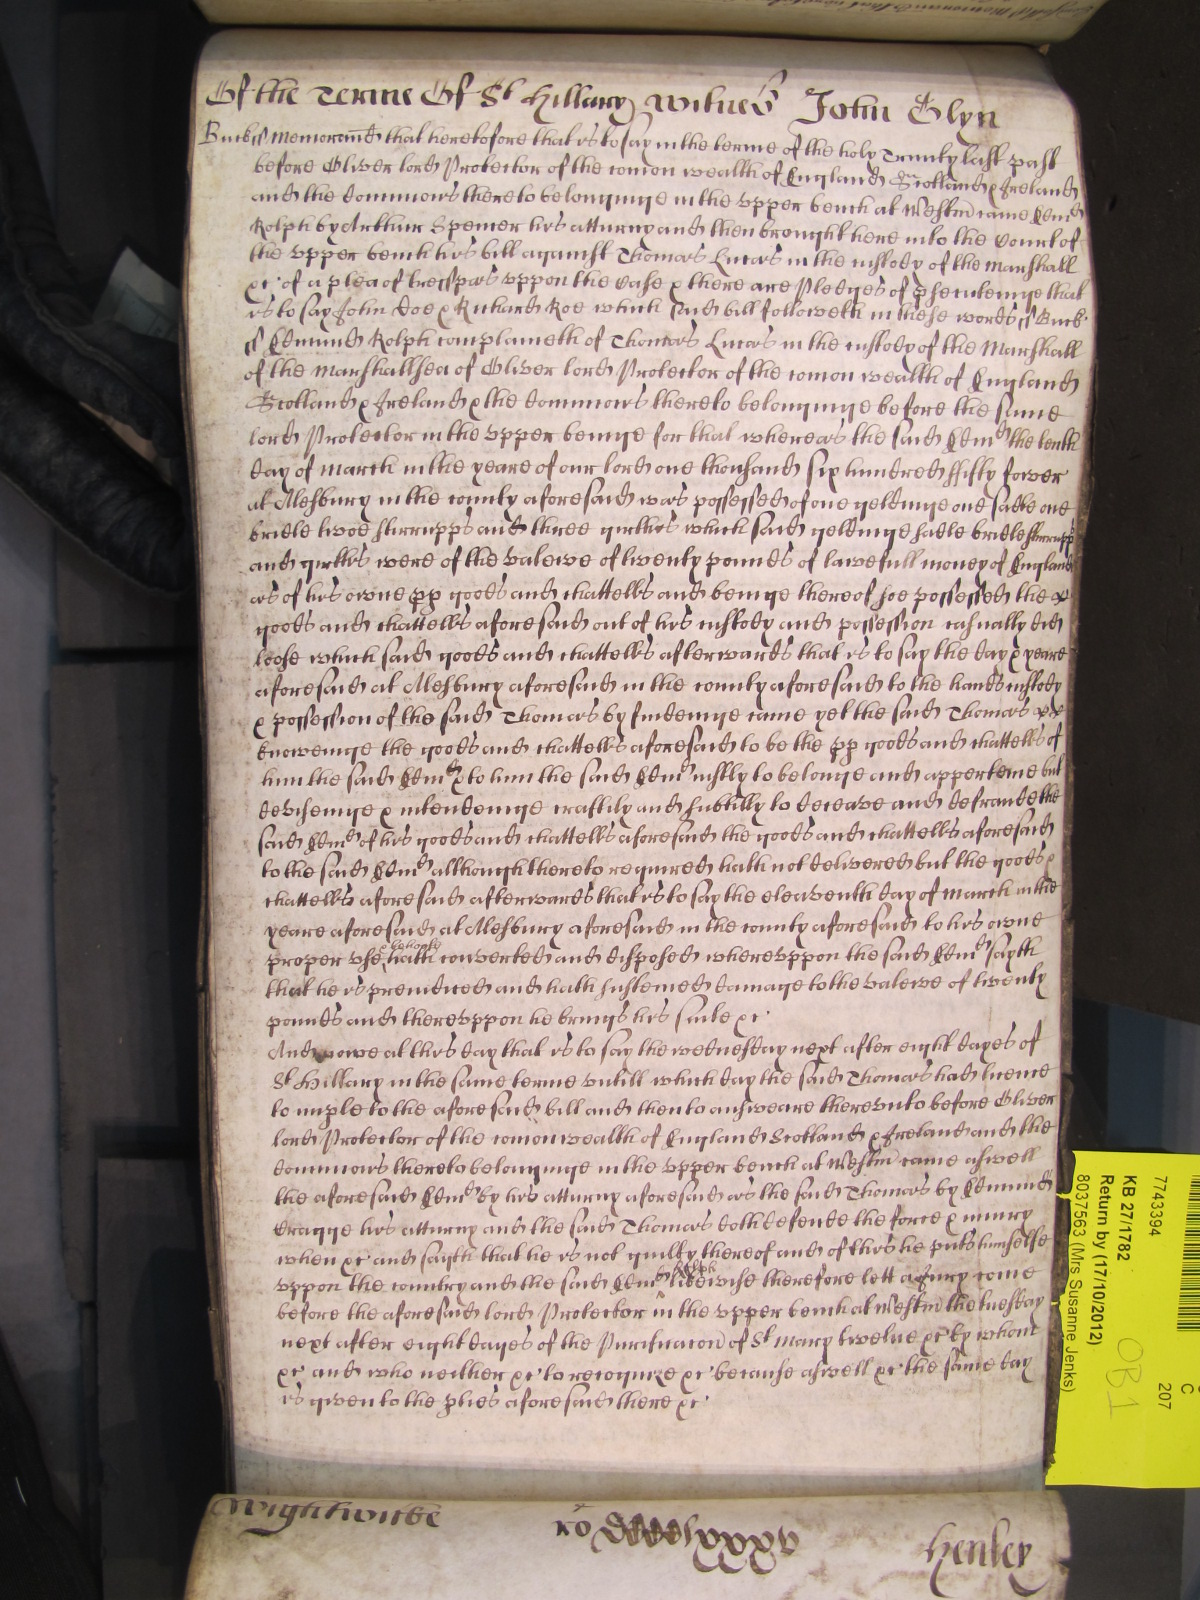 Of the Terme Of St Hillary Witnes John Glyn
Bucks ss Memorand that heretofore that is to say in the terme of the holy Trinity last past
before Oliver lord Protector of the comon wealth of England Scotland & Ireland
and the dominions thereto belonginge in the upper bench at Westm came Edmd
Rolph by Arthur Spencer his atturny and then brought here into the Court of
the upper bench his bill against Thomas Lucas in the custody of the Marshall
&c of a plea of trespas uppon the Case & there are Pledges of prosecutinge that
is to say John Doe & Richard Roe which said bill followeth in these words ss Buck
ss Edmund Rolph complaineth of Thomas Lucas in the custody of the Marshall
of the Marshallsea of Oliver lord Protector of the comon wealth of England
Scotland & Ireland & the dominions thereto belonginge before the same
lord Protector in the upper benge for that whereas the said Edmd the tenth
day of march in the yeare of our lord one thousand six hundred ffifty fower
at Alesbury in the county aforesaid was possessed of one geldinge one sadle one
bridle twoe stirrupps and three girthes which said geldinge sadle bridle stirrupps
and girthes were of the valewe of twenty pounds of lawefull money of England
as of his owne pp goods and chattells and beinge thereof soe possessed the
goods and chattells aforesaid out of his custody and possession casually did
loose which said goods and chattells afterwards that is to say the day & yeare
aforesaid at Alesbury aforesaid in the county aforesaid to the hands custody
& possession of the said Thomas by findeinge came yet the said Thomas
knoweinge the goods and chattells aforesaid to be the pp goods and chattells of
him the said Edmd & to him the said Edmd justly to belonge and apperteine but
devisinge & intendeinge craftily and subtilly to deceave and defraude the
said Edmd of his goods and chattells aforesaid the goods and chattells aforesaid
to the said Edmd allthough thereto required hath not delivered but the goods &
chattells aforesaid afterwards that is to say the eleaventh day of march in the
yeare aforesaid at Alesbury aforesaid in the county aforesaid to his owne
proper use & behoofe hath converted and disposed whereuppon the said Edmd sayth
that he is prejudiced and hath susteined damage to the valewe of twenty
pounds and thereuppon he brings his suite &c
And nowe at this day that is to say the wednesday next after eight dayes of
St Hillary in the same terme untill which day the said Thomas had licence
to imple to the aforesaid bill and then to answeare thereunto before Oliver
lord Protector of the comon wealth of England Scotland & Ireland and the
dominions thereto belonginge in the upper bench at Westm came aswell
the aforesaid Edmd by his atturny aforesaid as the said Thomas by Edmund
Cragge his atturny and the said Thomas doth defende the force & injury
when &c and sayth that he is not guilty thereof and of this he puts himselfe
uppon the country and the said Edmd Rolph likewise therefore lett a Jury come
before the aforesaid lord Protector in the upper bench at Westm the tuesday
next after eight dayes of the Purificacon of St Mary twelve &c by whom
&c and who neither &c to recognize &c because aswell &c the same day
is given to the pties aforesaid there &c
Wightwicke
Henley
7743394
KB 27/1782
Return by (17/10/2012)
8037563 (Mrs Susanne Jenks)
C
207
OB1